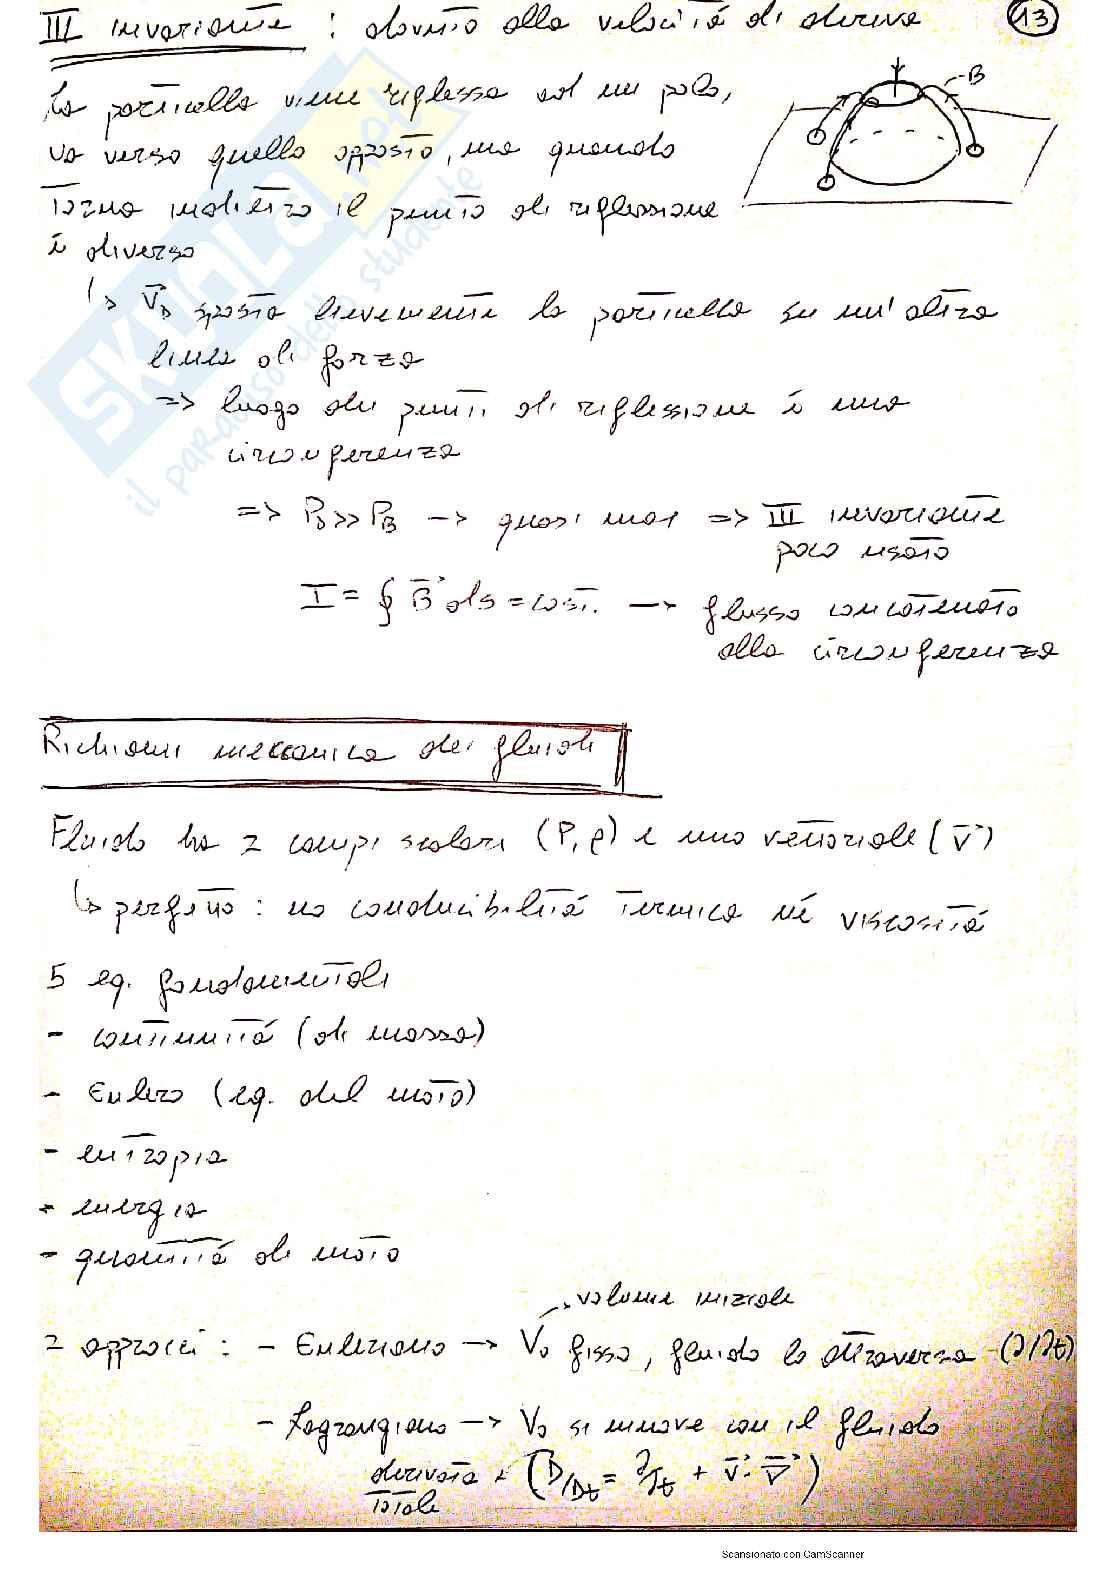 III invariante : dovuto alla velocità di deriva
13
La particella viene riflessa ad un polo,
B
va verso quello opposto, ma quando
torna indietro il punto di riflessione
è diverso
↳ V⃗D sposta lievemente la particella su un'altra
linea di forza
=> luogo dei punti di riflessione è una
circonferenza
=> PD >> PB -> quasi mai => III invariante
poco usato
I = ∮ B⃗ ds = cost. -> flusso concatenato
alla circonferenza
Richiami meccanica dei fluidi
Fluido ha 2 campi scalari (P, ρ) e uno vettoriale (v⃗)
↳ perfetto : no conducibilità termica né viscosità
5 eq. fondamentali
- continuità (di massa)
- Eulero (eq. del moto)
- entropia
- energia
- quantità di moto
volume iniziale
2 approcci : - Euleriano -> V₀ fisso, fluido lo attraversa (∂/∂t)
- Lagrangiano -> V₀ si muove con il fluido
derivata (D/Dt = ∂/∂t + v⃗·∇⃗)
totale
SKUOLA.net
il paradiso dello studente
Scansionato con CamScanner